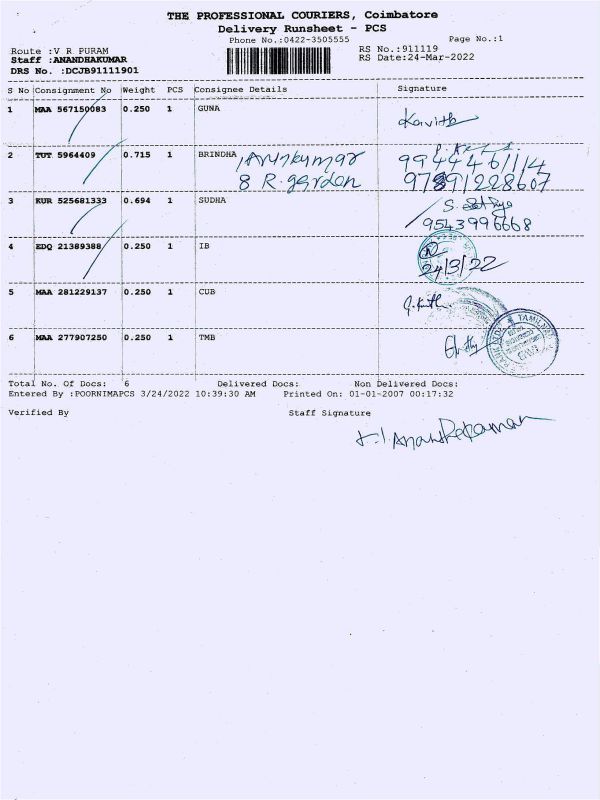 THE PROFESSIONAL COURIERS, Coimbatore
Delivery Runsheet - PCS
Phone No.:0422-3505555 Page No.:1
Route :V R PURAM RS No.:911119
Staff :ANANDHAKUMAR RS Date:24-Mar-2022
DRS No. :DCJB91111901
S No Consignment No Weight PCS Consignee Details Signature
1 MAA 567150083 0.250 1 GUNA
Kavitha
2 TUT 5964409 0.715 1 BRINDHA, Arunkumar 9944461114
8 R. garden 97891228607
3 KUR 525681333 0.694 1 SUDHA
9543996668
4 EDQ 21389388 0.250 1 IB
24/3/22
5 MAA 281229137 0.250 1 CUB
6 MAA 277907250 0.250 1 TMB
TAMILNAD
Total No. Of Docs: 6 Delivered Docs: Non Delivered Docs:
Entered By :POORNIMAPCS 3/24/2022 10:39:30 AM Printed On: 01-01-2007 00:17:32
Verified By Staff Signature